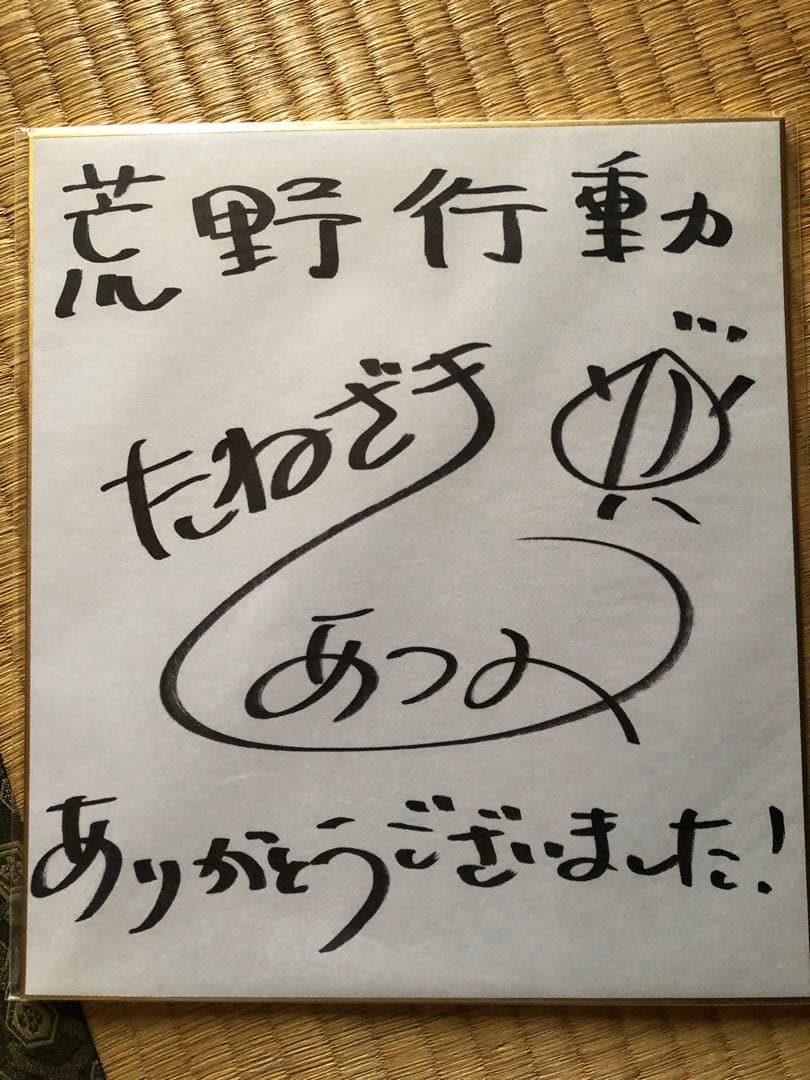 荒野行動
たねざき
あつみ
ありがとうございました！